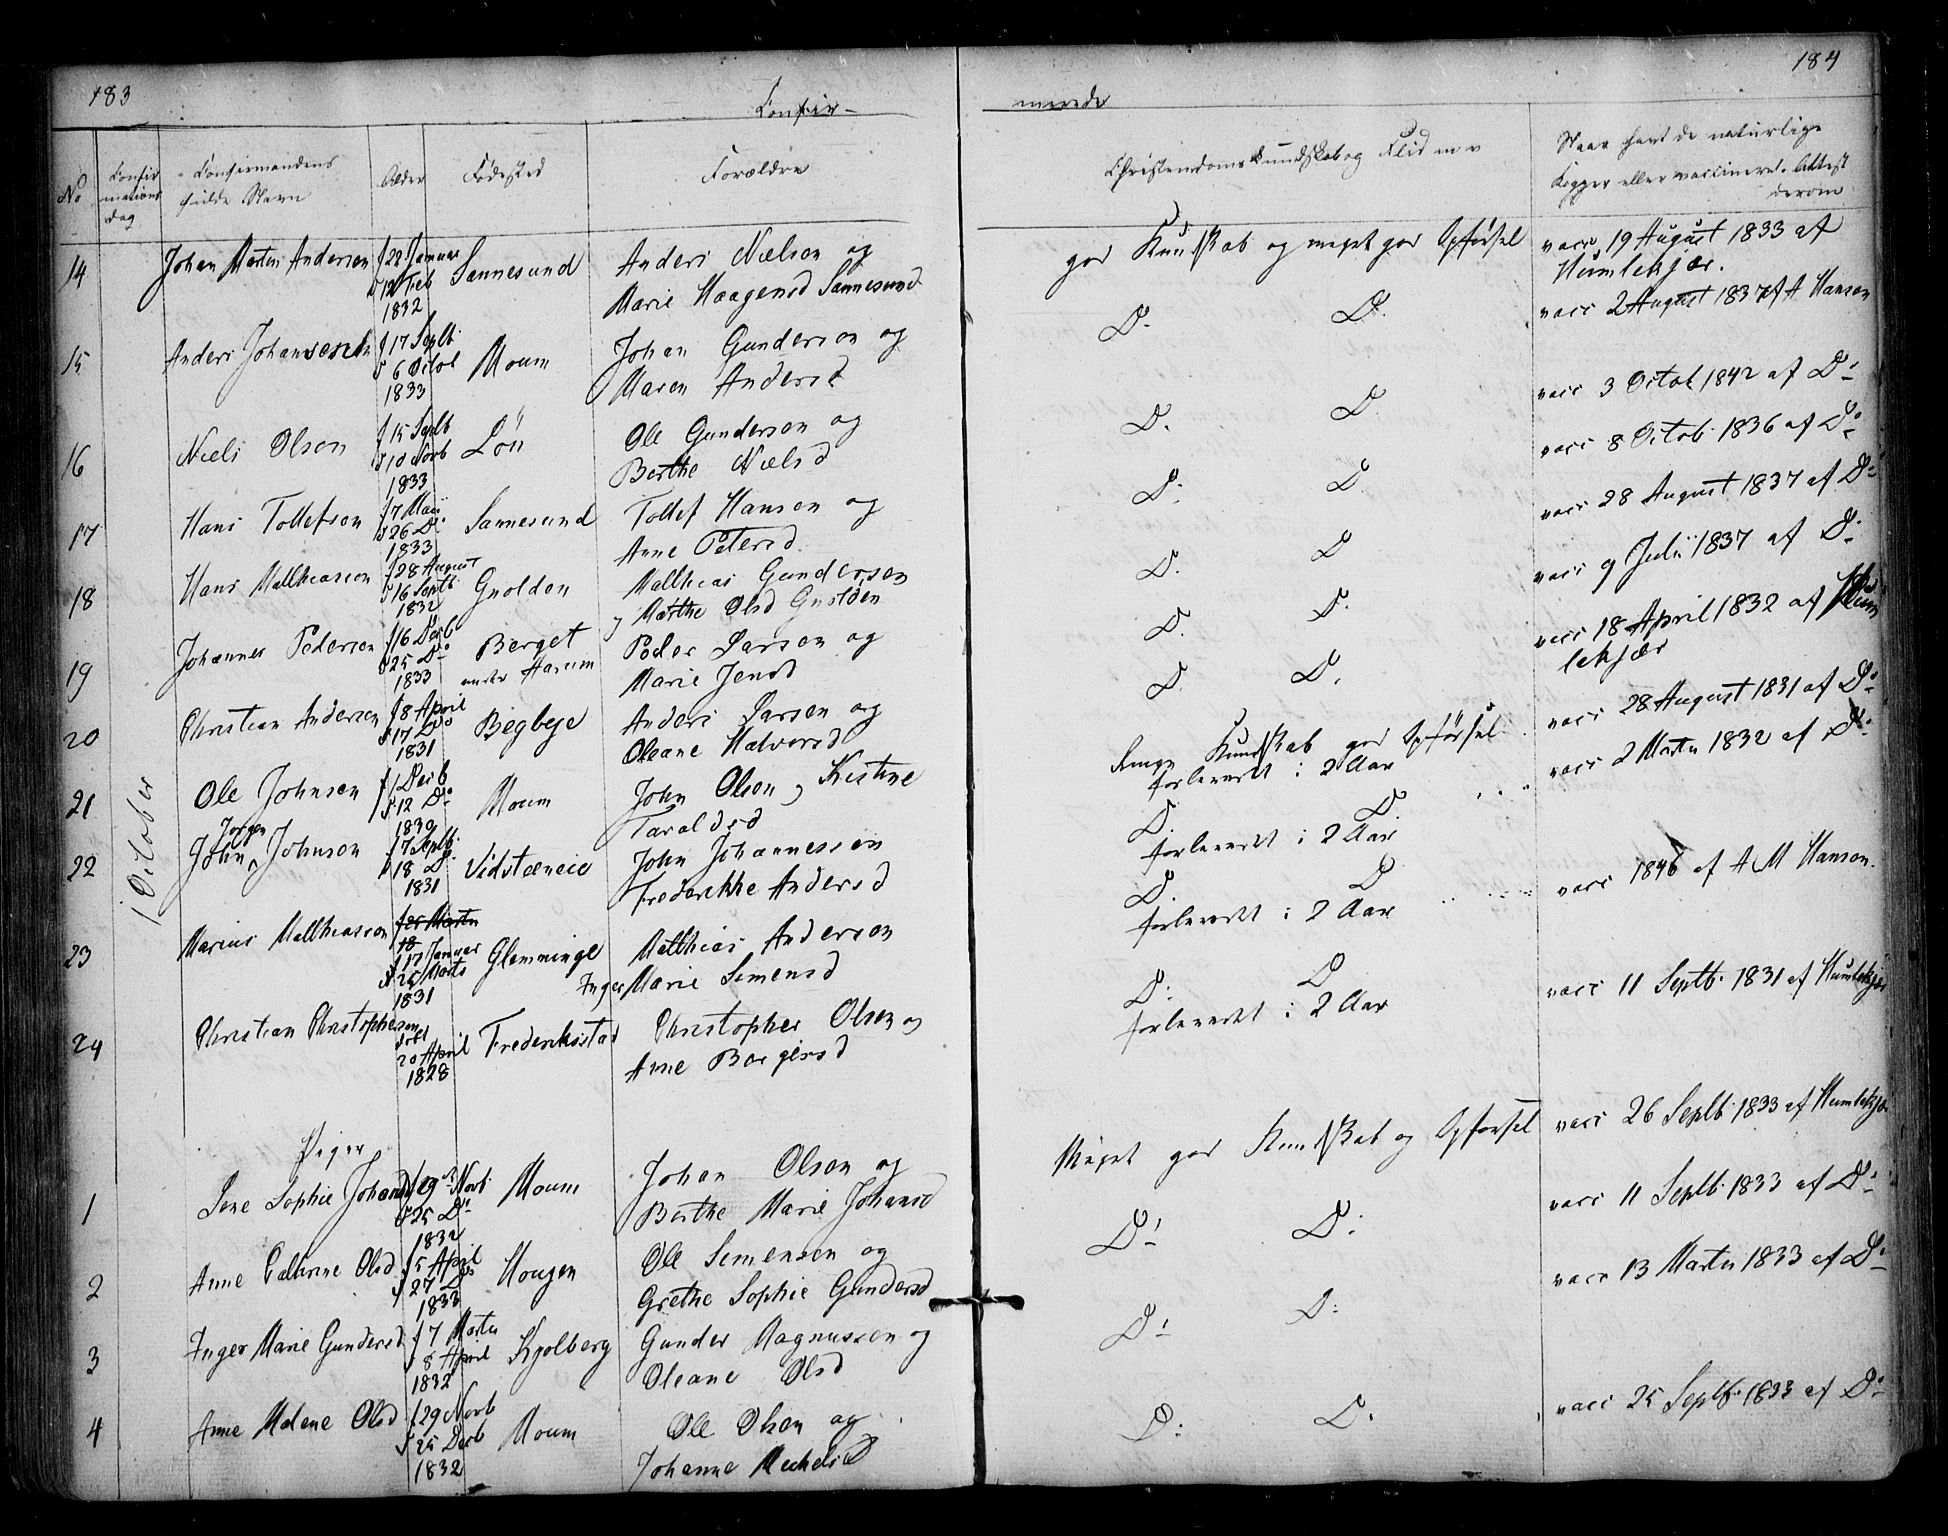 183
184
Confir-
merede
No
Confirmations dag
Confirmandens fulde Navn
Alder
Fødested
Forældre
Christendoms Kundskab og Flid m v
Naar havt de naturlige
Kopper eller vaccineret. Attest
derom
1 October
14 Johan Martin Andersen f 22 Januar Sannesund Anders Nielsen og
d 12 Feb Marie Haagensd Sannesund
1832
god Kundskab og meget god Opførsel
vacc. 19 August 1833 af
Humlekjær.
15 Anders Johansen f 17 Septb Moum Johan Gundersen og
d 6 Octob Maren Andersd
1833
D. D.
vacc 2 August 1837 af A Hansen
16 Niels Olsen f 15 Septb Løu Ole Gundersen og
d 10 Novb Berthe Nielsd
1833
D. D.
vacc 3 Octob 1842 af Do
17 Hans Tollefsen f 7 Mai Sannesund Tollef Hansen og
d 26 Do Anne Petersd
1833
D. D.
vacc 8 Octob 1836 af Do
18 Hans Matthiassen f 28 August Gnolden Matthias Gundersen
d 16 Septb og Marthe Olsd Gnolden
1832
D. D
vacc 28 August 1837 af Do
19 Johannes Pedersen f 16 Decb Berget Peder Larsen og
d 25 Do under Haaum Marie Jensd
1833
D. D.
vacc 9 Julii 1837 af Do
20 Christian Andersen f 8 April Begbye Anders Larsen og
d 17 Do Oleane Halvorsd
1831
D. D.
vacc 18 April 1832 af Hum
lekjær
21 Ole Johnsen f 1 Decb Moum John Olsen og Kistine
d 12 Do Taraldsd
1830
Kundskab god Opførsel
forberedt i 2 Aar
vacc 28 August 1831 af Do
22 John Jørgen Johnsen f 7 Septb Vidstæneie John Johannessen
d 18 Do Frederikke Andersd
1831
D. D
forberedt i 2 Aar
vacc 2 Marts 1832 af Do
23 Marius Matthiassen f 25 Marts Glemminge Matthias Andersen
18
f 17 Januar Inger Marie Simensd
d 25 Marts
1831
D. D
forberedt i 2 Aar
vacc 1846 af A M Hansen.
24 Christian Christophersen Frederiksstad Christopher Olsen og
døbt Anne Borgersd
20 April
1828
D. D
forberedt i 2 Aar
vacc 11 Septb. 1831 af Humlekjær
Piger
1 Lene Sophie Johansd f 9 Novb Moum Johan Olsen og
d 25 Do Berthe Marie Johansd
1832
Meget god Kundskab og Opførsel
vacc 26 Septb. 1833 af Humlekjær
2 Anne Cathrine Olsd f 5 April Hougen Ole Simensen og
d 27 Do Grethe Sophie Gundersd
1833
Do D.
vacc 11 Septb. 1833 af Do
3 Inger Marie Gundersd f 7 Marts Kjølberg Gunder Magnussen og
d 8 April Oleane Olsd
1832
Do D.
vacc 13 Marts 1833 af Do
4 Anne Malene Olsd f 29 Novb Moum Ole Olsen og
d 25 Decb Johanne Michelsd
1832
D. D.
vacc 25 Septb. 1833 af Do